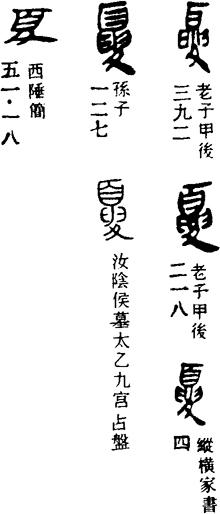 夏
老子甲後
三九二
夏
老子甲後
二一八
夏
縱橫家書
四
夏
孫子
一二七
夏
汝陰侯墓太乙九宫占盤
夏
西陲簡
五一·一八